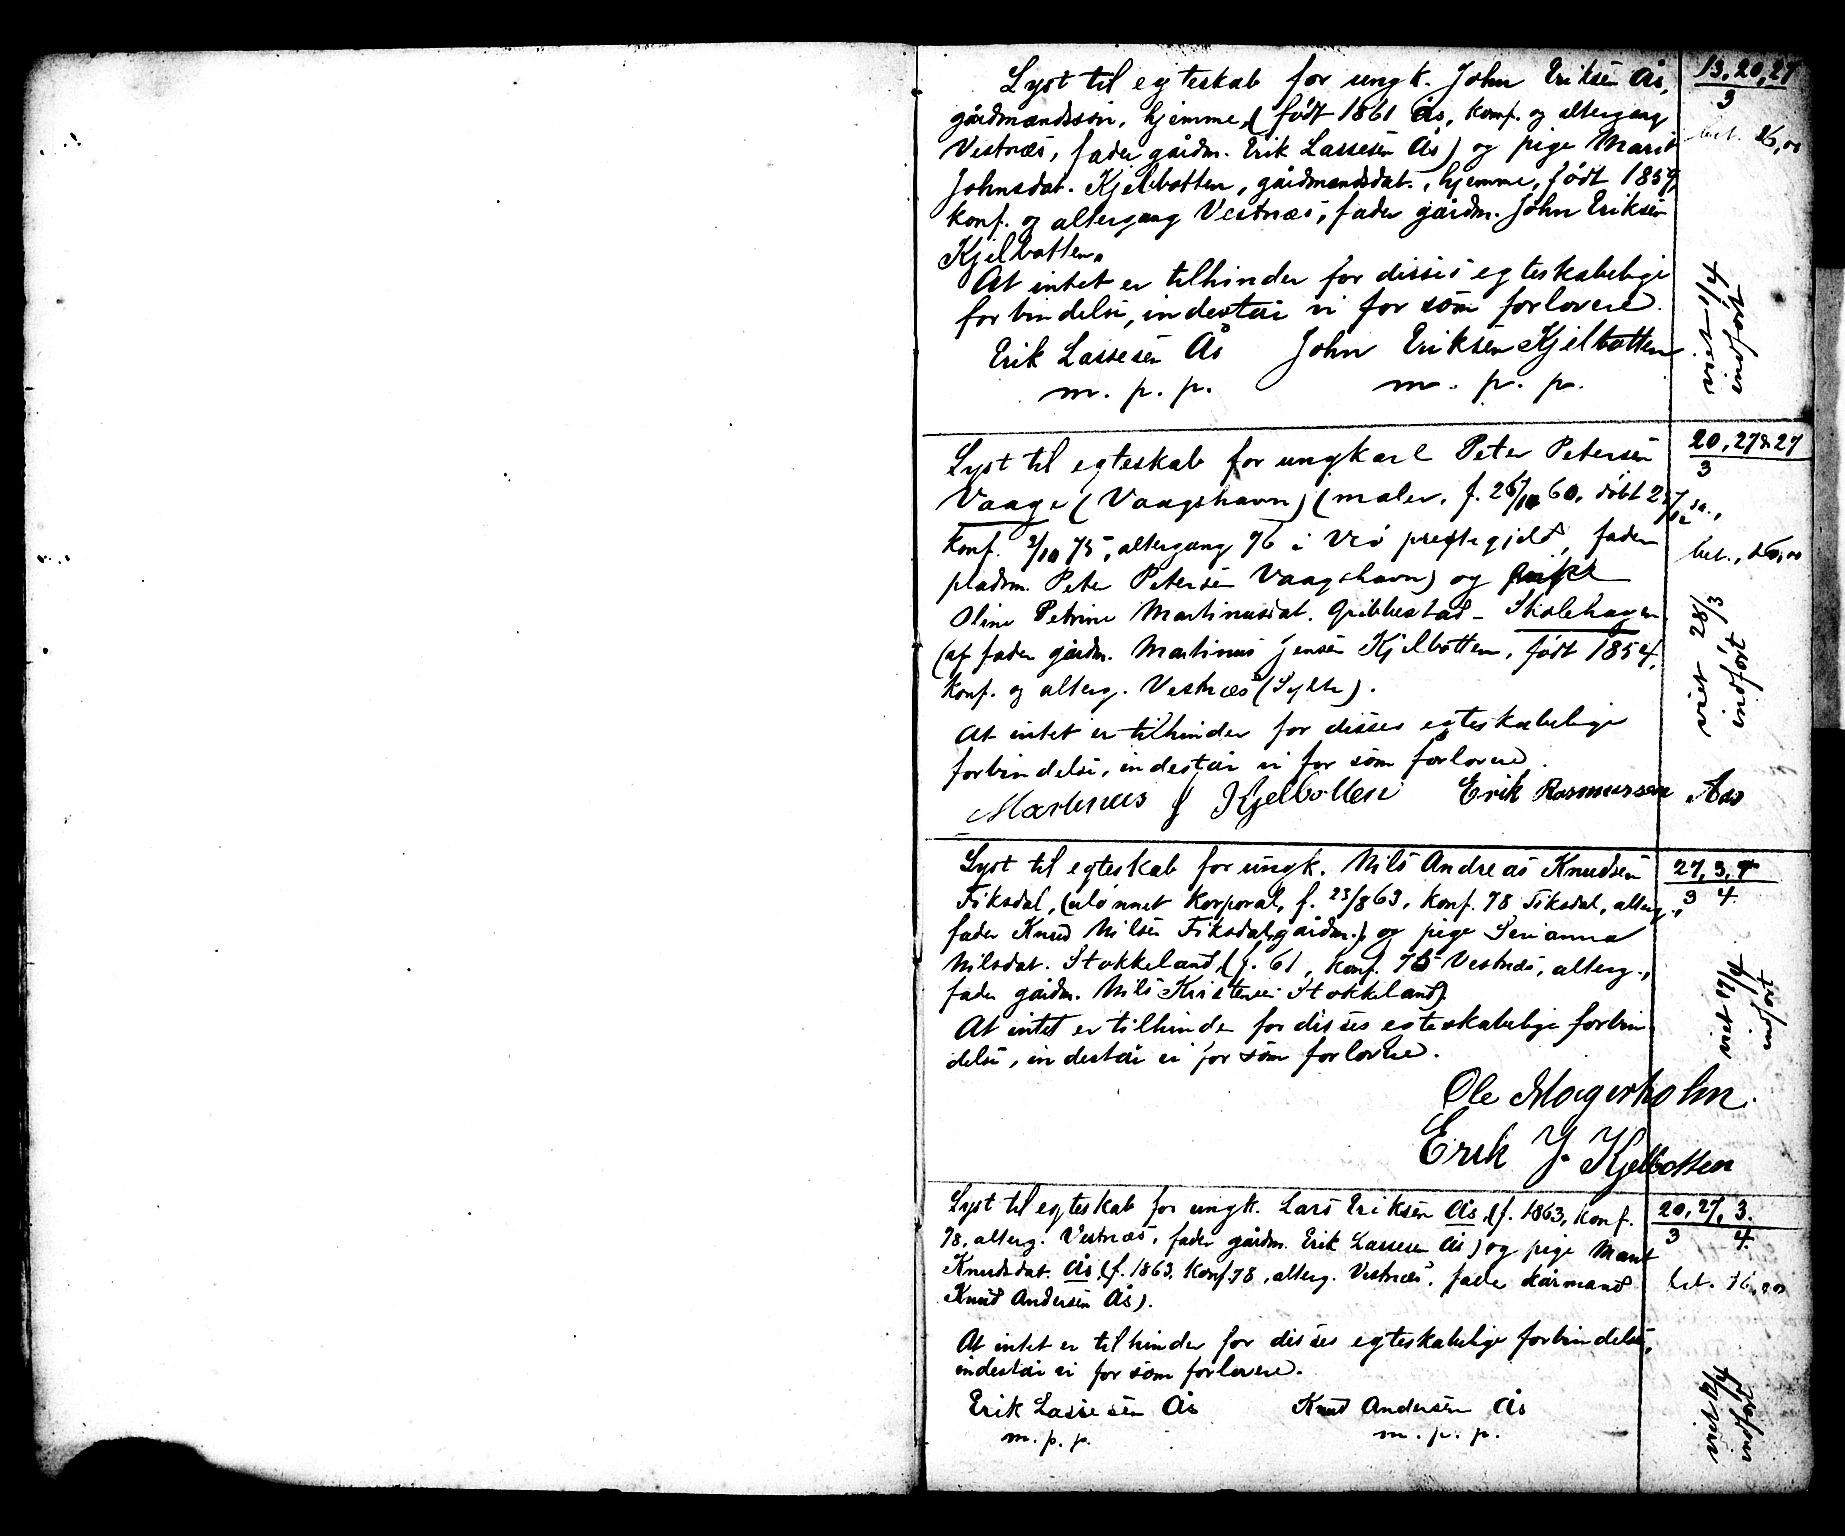 Lyst til egteskab for ungk. John Eriksen Ås,
gårdmandssön, hjemme, (født 1861 Ås, konf. og altergang
Vestnæs, fader gårdm. Erik Lassesen Ås) og pige Marit
Johnsdat. Kjelbotten, gårdmandsdat., hjemme, født 1859,
konf. og altergang Vestnæs, fader gårdm. John Eriksen
Kjelbotten.
At intet er tilhinder for disses egteskabelige
forbindelse, indestår vi for som forlovere.
Erik Lassesen Ås John Eriksen Kjelbotten
m. p. p. m. p. p.
13, 20, 27
3
bet.
viet 1/4
indført
Lyst til egteskab for ungkarl Peter Petersen
Vaage (Vaagshavn) (maler, f. 60, døbt
konf. 2/10 75, altergang 76 i Veö prestegjeld, fader
pladsm. Peter Petersen Vaagshavn) og
Oline Petrine Martinusdat. Gribbestad - Skolehagen
(af fader gårdm. Martinus Jensen Kjelbotten, født 1854,
konf. og alterg. Vestnæs (Sylte).
At intet er tilhinder for disses egteskabelige
forbindelse, indestår vi for som forlovere.
Martinus J Kjelbotten Erik Rasmussen Aas
20, 27 & 27
3
bet.,
viet 28/3
indført
Lyst til egteskab for ungk. Nils Andreas Knudsen
Fiksdal, (ulønnet korporal, f. 23/8 63, konf. 78 Fiksdal, alterg.,
fader Knud Nilsen Fiksdal, gårdm.), og pige Serianna
Nilsdat. Stokkeland, (f. 61, konf. 75 Vestnæs, alterg.,
fader gårdm. Nils Kristensen Stokkeland).
At intet er tilhinder for disses egteskabelige forbin
delse, indestår vi for som forlovere.
Ole Magerholm.
Erik J. Kjelbotten
27, 3, 4
3 4
indført
Lyst til egteskab for ungk. Lars Eriksen Ås, (f. 1863, konf.
78, alterg. Vestnæs, fader gårdm. Erik Lassesen Ås) og pige Marit
Knudsdat. Ås, (f. 1863, konf. 78, alterg. Vestnæs, fader kårmand
Knud Andersen Ås).
At intet er tilhinder for disses egteskabelige forbindelse,
indestår vi for som forlovere.
Erik Lassesen Ås Knud Andersen Ås
m. p. p. m. p. p.
20, 27, 3.
3 4.
bet.
viet
indført